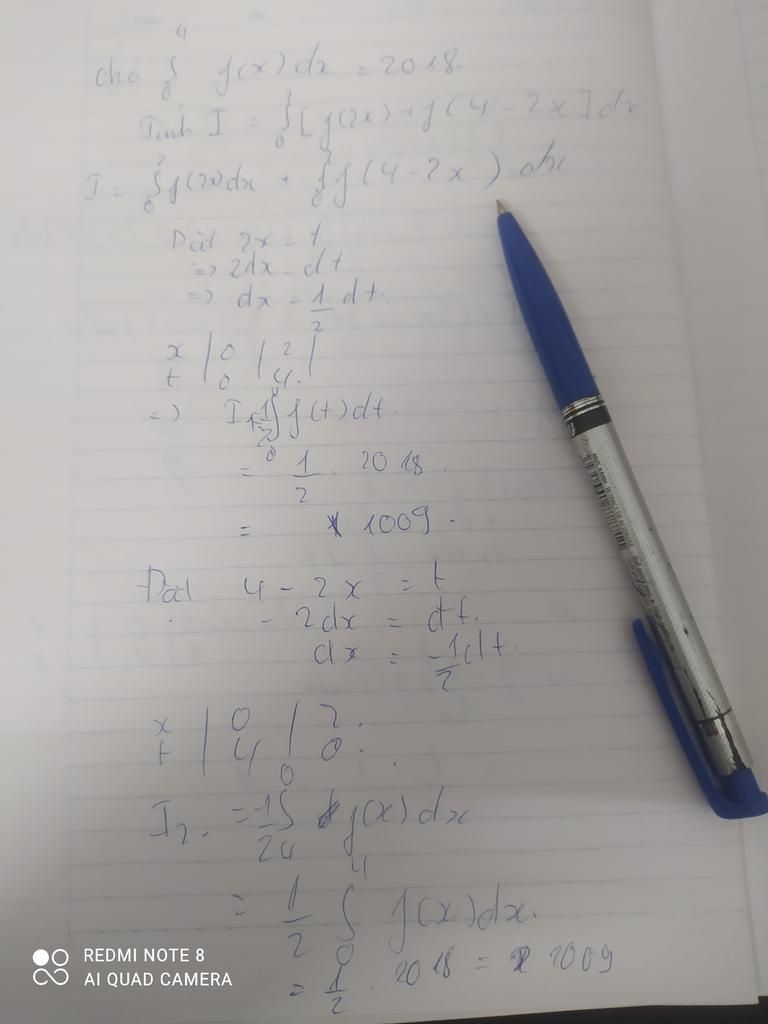 4
cho ∫ f(x) dx = 2018.
0
Tính I = ∫₀² [f(2x) + f(4 - 2x] dx
I = ∫₀² f(2x) dx + ∫₀² f(4 - 2x) dx
Đặt 2x = t
=> 2dx = dt.
=> dx = 1/2 dt.
x | 0 | 2 |
t | 0 | 4.
=> I₁ = 1/2 ∫₀⁴ f(t) dt.
= 1/2 . 2018.
= 1009.
Đặt 4 - 2x = t
- 2dx = dt.
dx = -1/2 dt.
x | 0 | 2.
t | 4 | 0.
I₂. = 1/2 ∫₄⁰ f(x) dx
= 1/2 ∫₀⁴ f(x) dx.
= 1/2 . 2018 = 2009.
REDMI NOTE 8
AI QUAD CAMERA